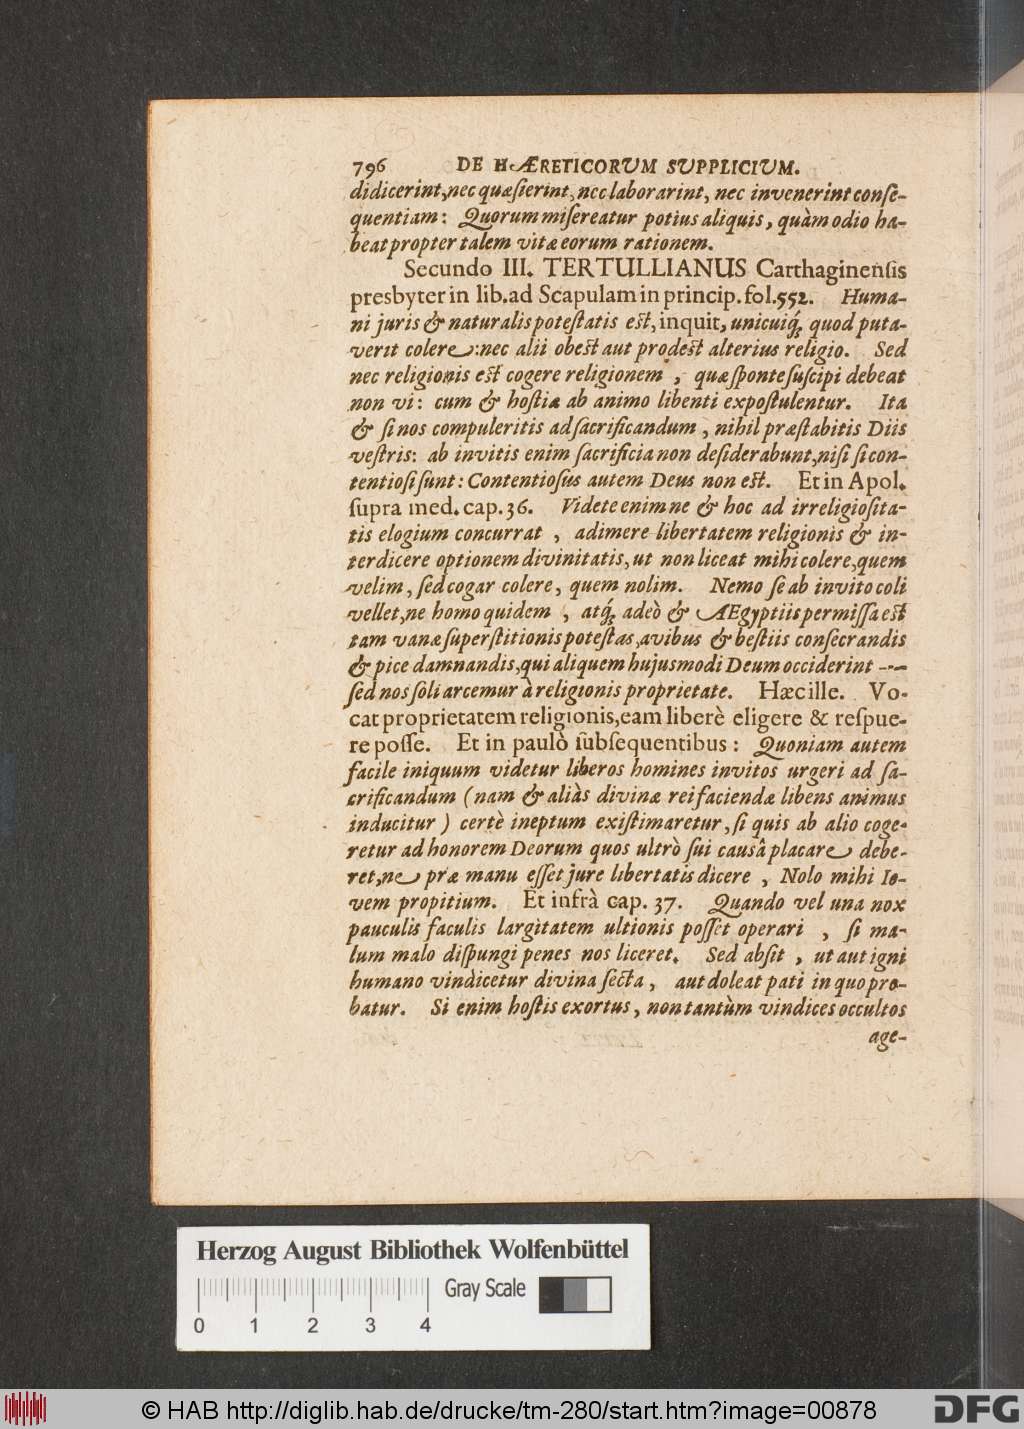 796 DE HÆRETICORVM SVPPLICIVM.
didicerint, nec quæsierint, nec laborarint, nec invenerint conse-
quentiam: Quorum misereatur potius aliquis, quàm odio ha-
beat propter talem vitæ eorum rationem.
Secundo III. TERTULLIANUS Carthaginensis
presbyter in lib. ad Scapulam in princip. fol. 552. Huma-
ni juris & naturalis potestatis est, inquit, unicuiq́; quod puta-
verit colere: nec alii obest aut prodest alterius religio. Sed
nec religionis est cogere religionem, quæ sponte suscipi debeat
non vi: cum & hostiæ ab animo libenti expostulentur. Ita
& si nos compuleritis ad sacrificandum, nihil præstabitis Diis
vestris: ab invitis enim sacrificia non desiderabunt, nisi si con-
tentiosi sunt: Contentiosus autem Deus non est. Et in Apol.
supra med. cap. 36. Videte enim ne & hoc ad irreligiosita-
tis elogium concurrat, adimere libertatem religionis & in-
terdicere optionem divinitatis, ut non liceat mihi colere, quem
velim, sed cogar colere, quem nolim. Nemo se ab invito coli
vellet, ne homo quidem, atq́; adeò & AEgyptiis permissa est
tam vanæ superstitionis potestas, avibus & bestiis consecrandis
& pice damnandis, qui aliquem hujusmodi Deum occiderint ---
sed nos soli arcemur à religionis proprietate. Hæc ille. Vo-
cat proprietatem religionis, eam liberè eligere & respue-
re posse. Et in paulò subsequentibus: Quoniam autem
facile iniquum videtur liberos homines invitos urgeri ad sa-
crificandum (nam & aliàs divinæ rei faciendæ libens animus
inducitur) certè ineptum existimaretur, si quis ab alio coge-
retur ad honorem Deorum quos ultrò sui causâ placare debe-
ret, ne præ manu esset jure libertatis dicere, Nolo mihi Io-
vem propitium. Et infrà cap. 37. Quando vel una nox
pauculis faculis largitatem ultionis posset operari, si ma-
lum malo dispungi penes nos liceret. Sed absit, ut aut igni
humano vindicetur divina secta, aut doleat pati in quo pro-
batur. Si enim hostis exortus, non tantùm vindices occultos
age-
Herzog August Bibliothek Wolfenbüttel
Gray Scale
0 1 2 3 4
© HAB http://diglib.hab.de/drucke/tm-280/start.htm?image=00878
DFG